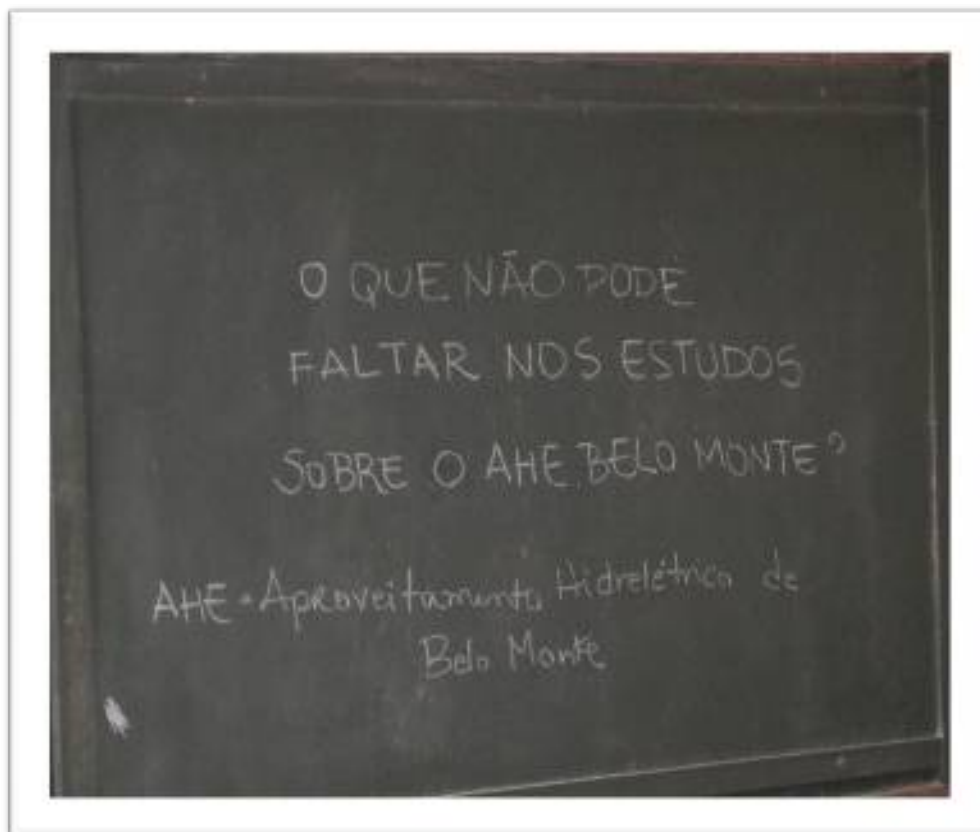 O QUE NÃO PODE
FALTAR NOS ESTUDOS
SOBRE O AHE BELO MONTE?
AHE - Aproveitamento Hidrelétrico de
Belo Monte